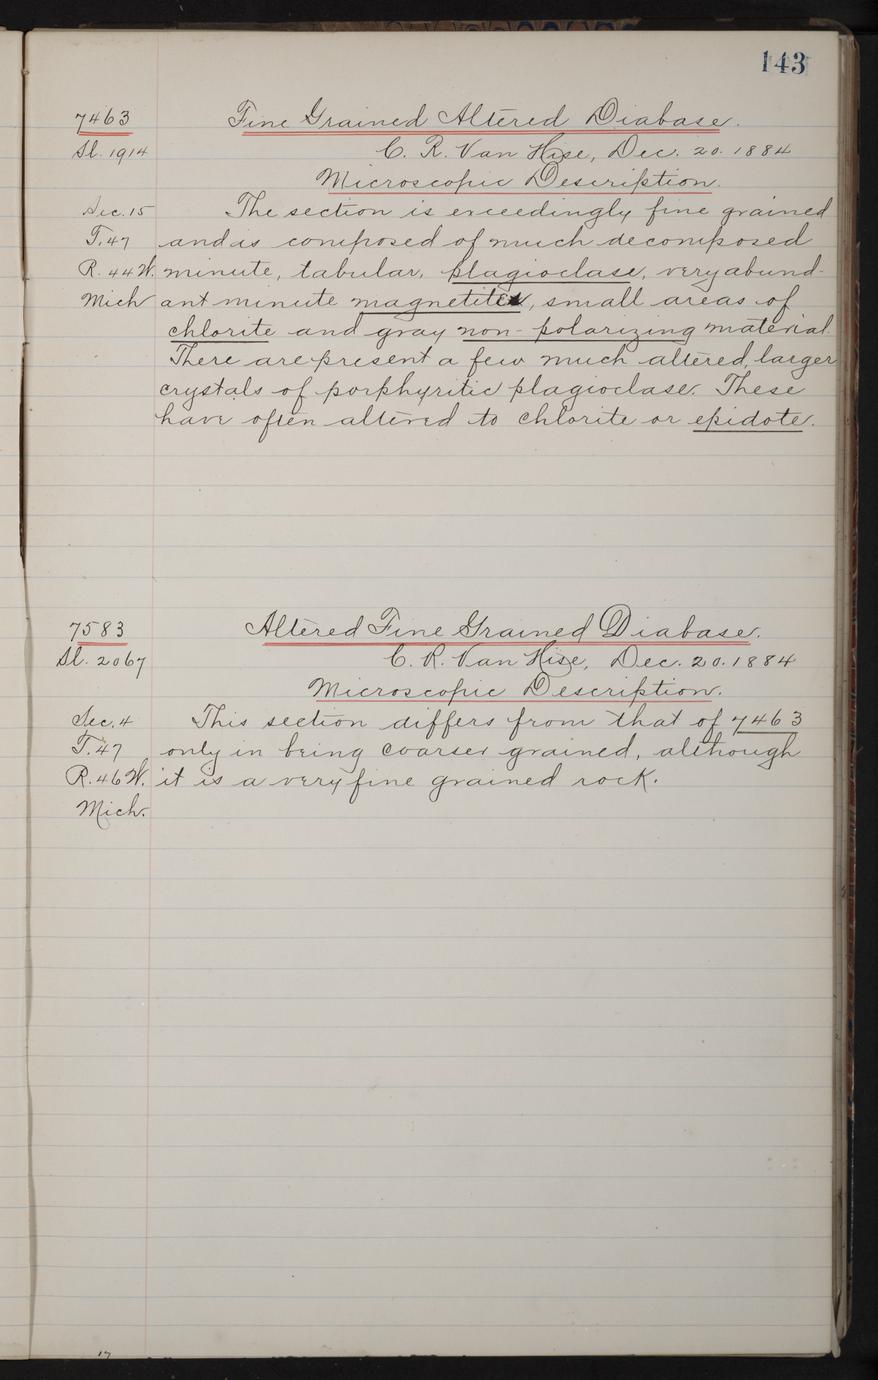 143
7463 Fine Grained Altered Diabase.
Sl. 1914 C. R. Van Hise, Dec. 20. 1884
Microscopic Description.
Sec. 15 The section is exceedingly fine grained
T. 47 and is composed of much decomposed
R. 44 W. minute, tabular, plagioclase, very abund-
Mich ant minute magnetite, small areas of
chlorite and gray non-polarizing material.
There are present a few much altered, larger
crystals of porphyritic plagioclase. These
have often altered to chlorite or epidote.
7583 Altered Fine Grained Diabase.
Sl. 2067 C. R. Van Hise, Dec. 20. 1884
Microscopic Description.
Sec. 4 This section differs from that of 7463
T. 47 only in being coarser grained, although
R. 46 W. it is a very fine grained rock.
Mich.